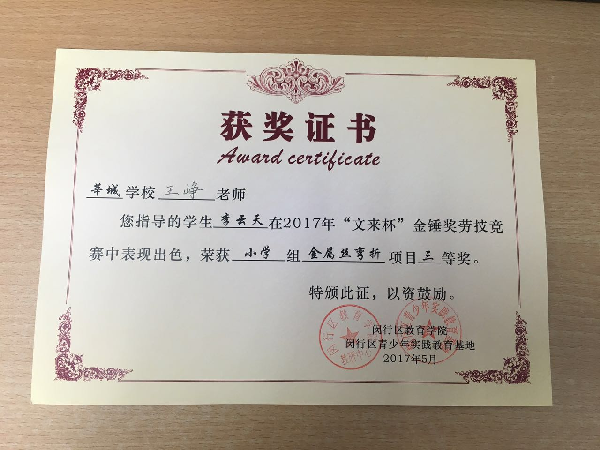 获奖证书
Award certificate
莘城学校王峥老师
您指导的学生李云天在2017年“文来杯”金锤奖劳技竞
赛中表现出色，荣获小学组金属丝弯折项目三等奖。
特颁此证，以资鼓励。
闵行区教育学院
闵行区青少年实践教育基地
2017年5月